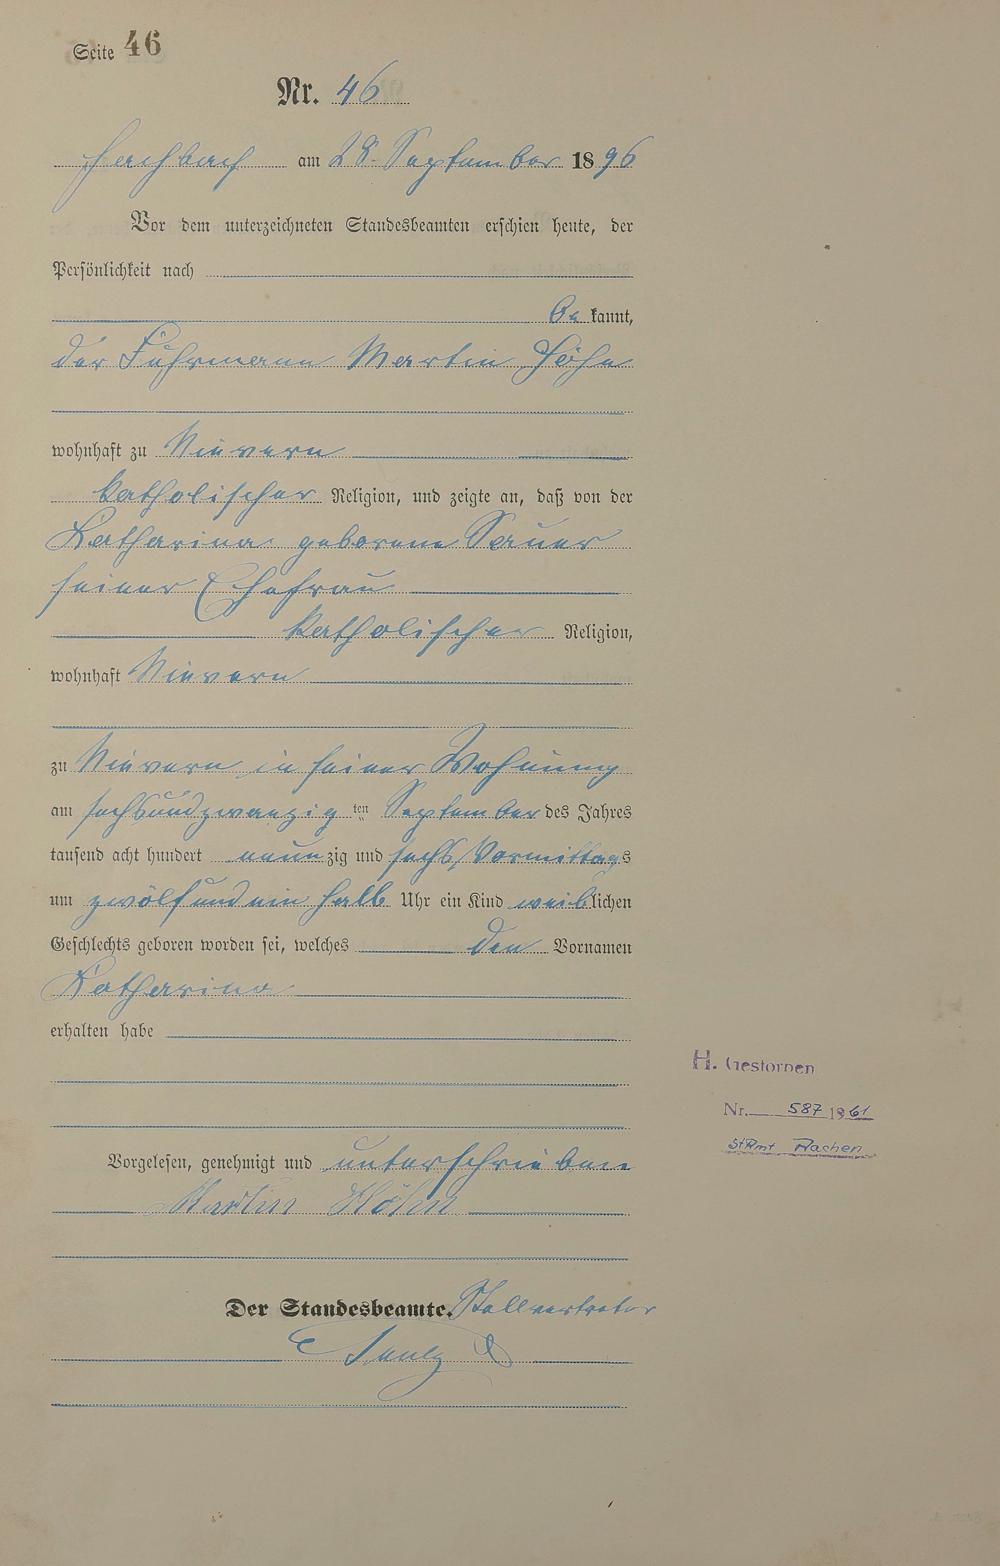 Seite 46
Nr. 46
Fachbach am 28. September 1896
Vor dem unterzeichneten Standesbeamten erschien heute, der
Persönlichkeit nach
bekannt,
der Fuhrmann Martin Höhn
wohnhaft zu Nievern
katholischer Religion, und zeigte an, daß von der
Katharina geborene Sauer
seiner Ehefrau
katholischer Religion,
wohnhaft Nievern
zu Nievern in seiner Wohnung
am sechsundzwanzigten September des Jahres
tausend acht hundert neunzig und sechs, Vormittags
um zwölfundein halb Uhr ein Kind weiblichen
Geschlechts geboren worden sei, welches den Vornamen
Katharina
erhalten habe
H. Gestorben
Nr. 587 1961
StAmt Aachen
Vorgelesen, genehmigt und unterschrieben
Martin Höhn
Der Standesbeamte. Stellvertreter